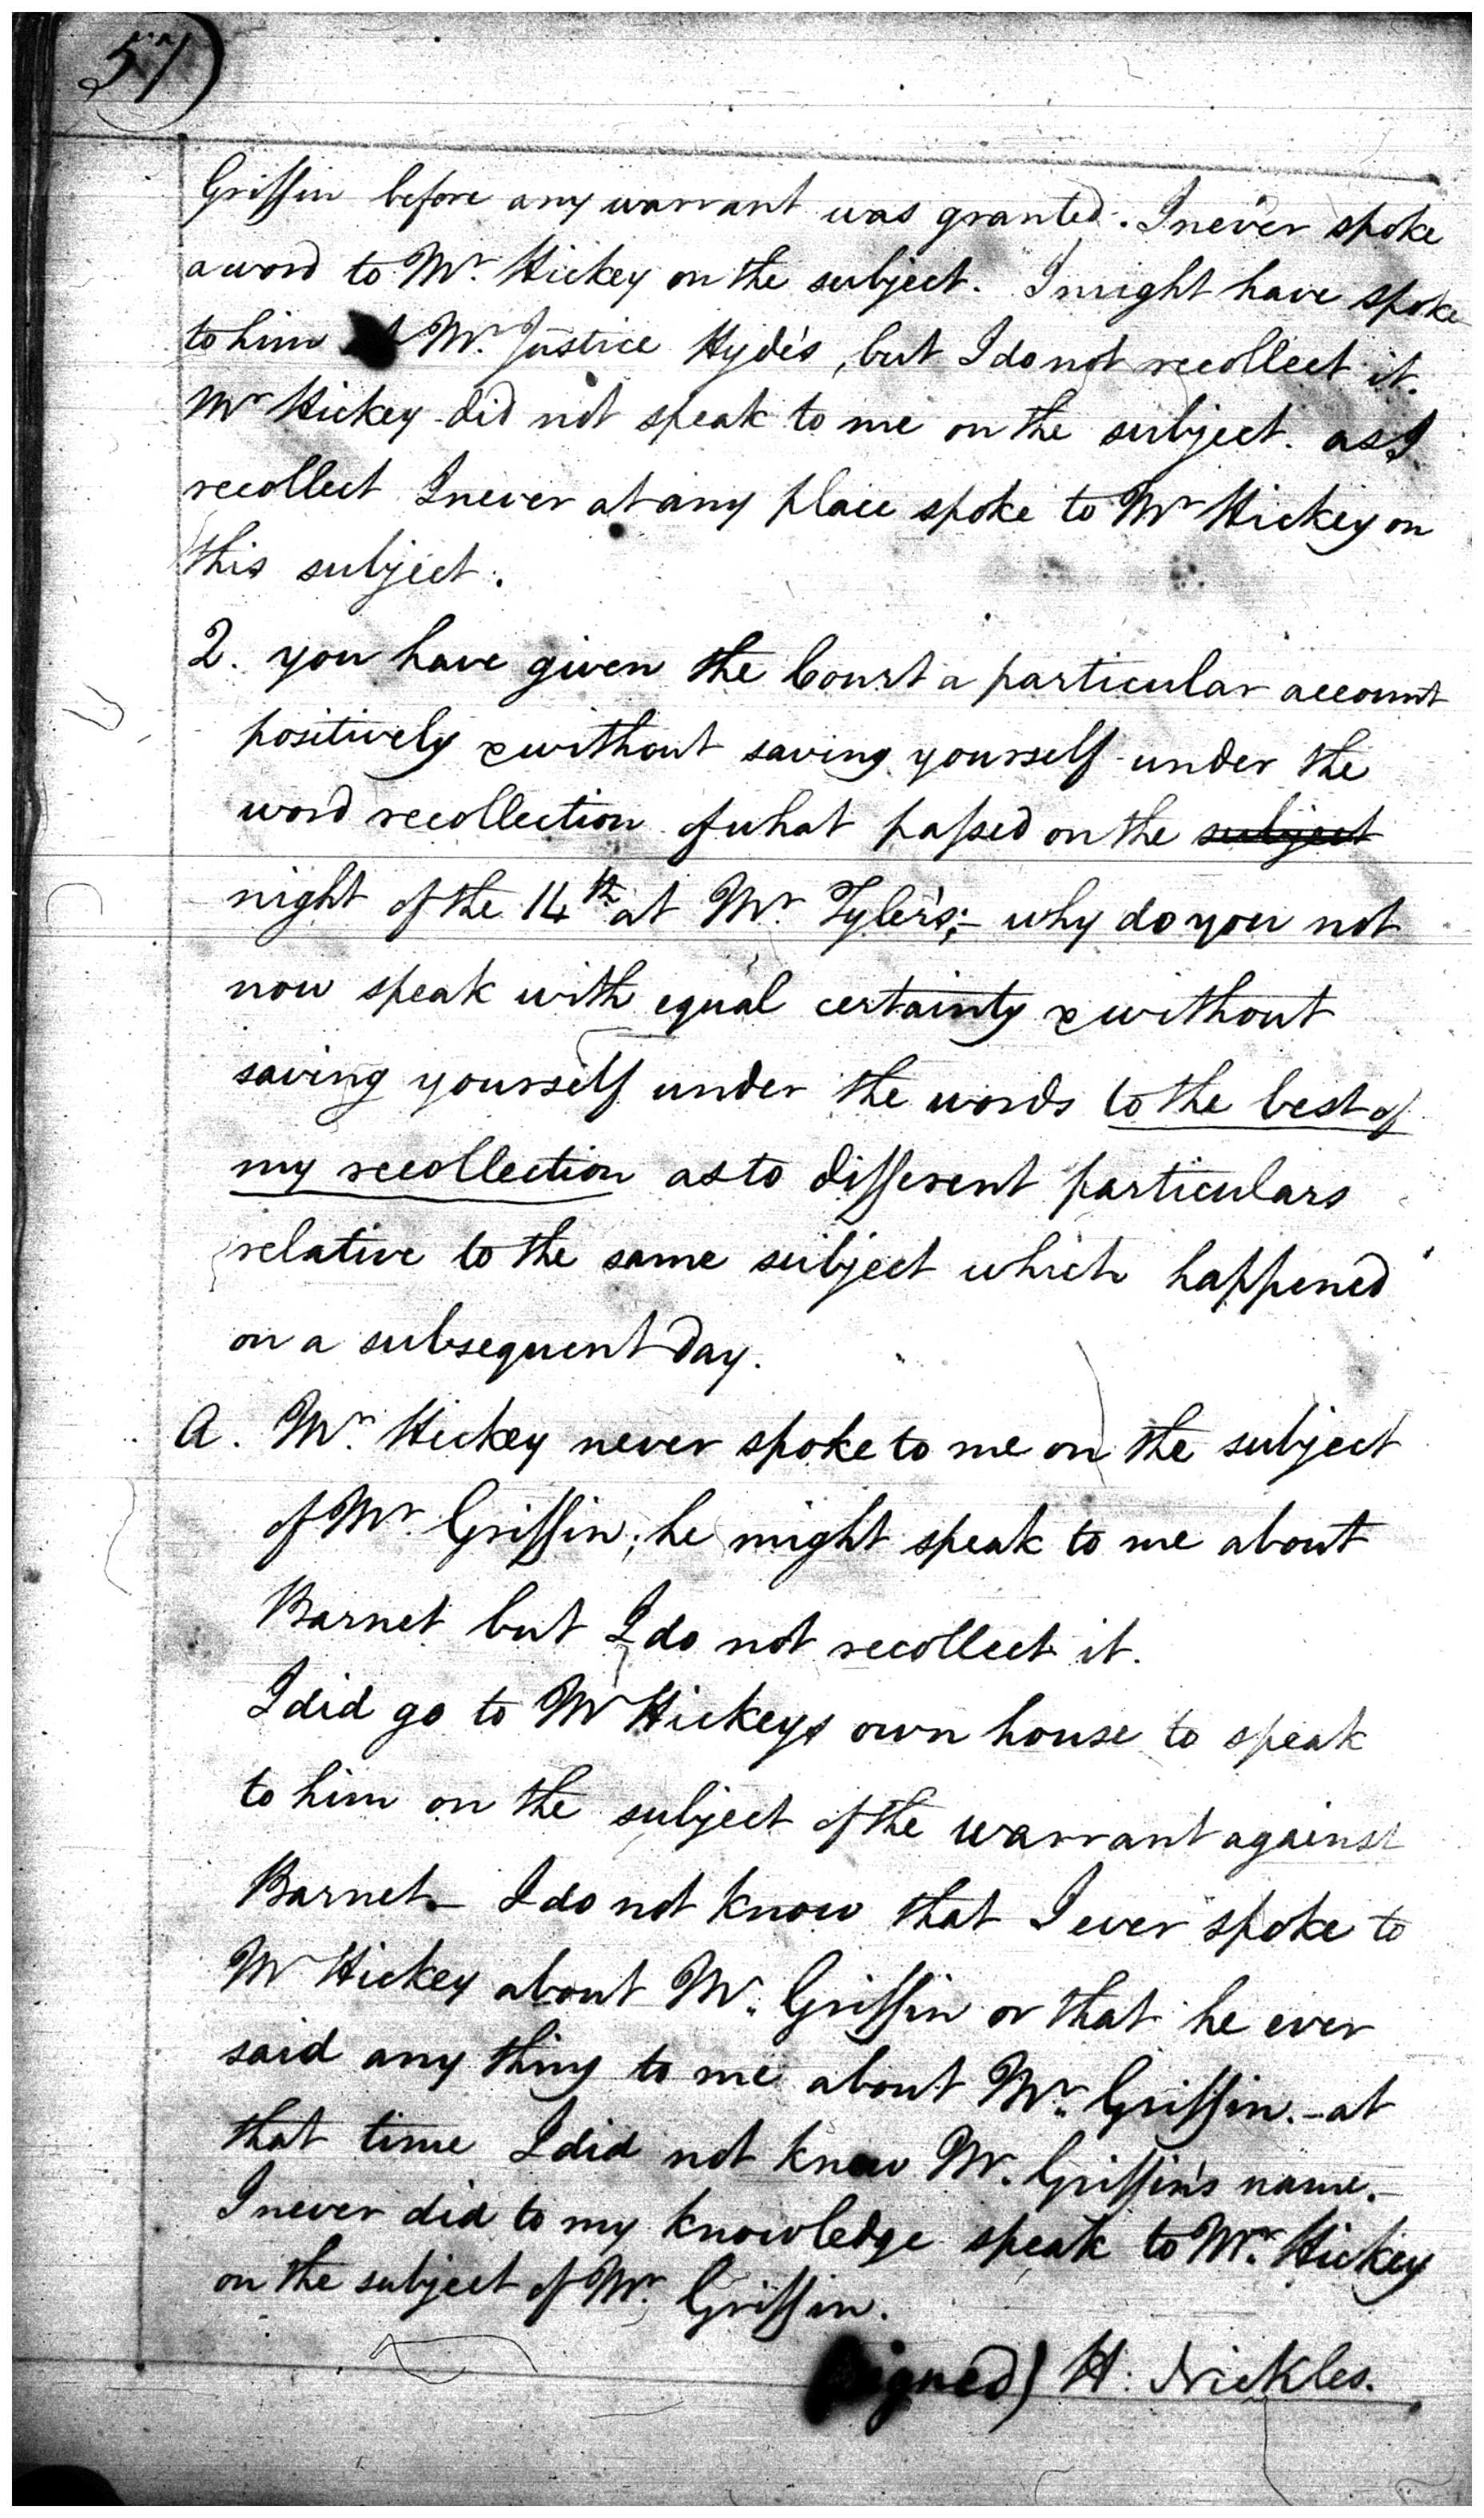 57)
Griffin before any warrant was granted. I never spoke
a word to Mr. Hickey on the subject. I might have spoke
to him Mr. Justice Hyde's, but I do not recollect it.
Mr Hickey did not speak to me on the subject. as I
recollect I never at any place spoke to Mr Hickey on
this subject.
Q. you have given the Court a particular account
positively & without saving yourself under the
word recollection of what passed on the subject
night of the 14th at Mr Tyler's;- why do you not
now speak with equal certainty & without
saving yourself under the words to the best of
my recollection as to different particulars
relative to the same subject which happened
on a subsequent day.
A. Mr. Hickey never spoke to me on the subject
of Mr. Griffin; he might speak to me about
Barnet but I do not recollect it.
I did go to Mr Hickeys own house to speak
to him on the subject of the warrant against
Barnet- I do not know that I ever spoke to
Mr Hickey about Mr. Griffin or that he ever
said any thing to me about Mr. Griffin. - at
that time I did not know Mr. Griffin's name.-
I never did to my knowledge speak to Mr. Hickey
on the subject of Mr. Griffin.
Signed) H. Nickles.